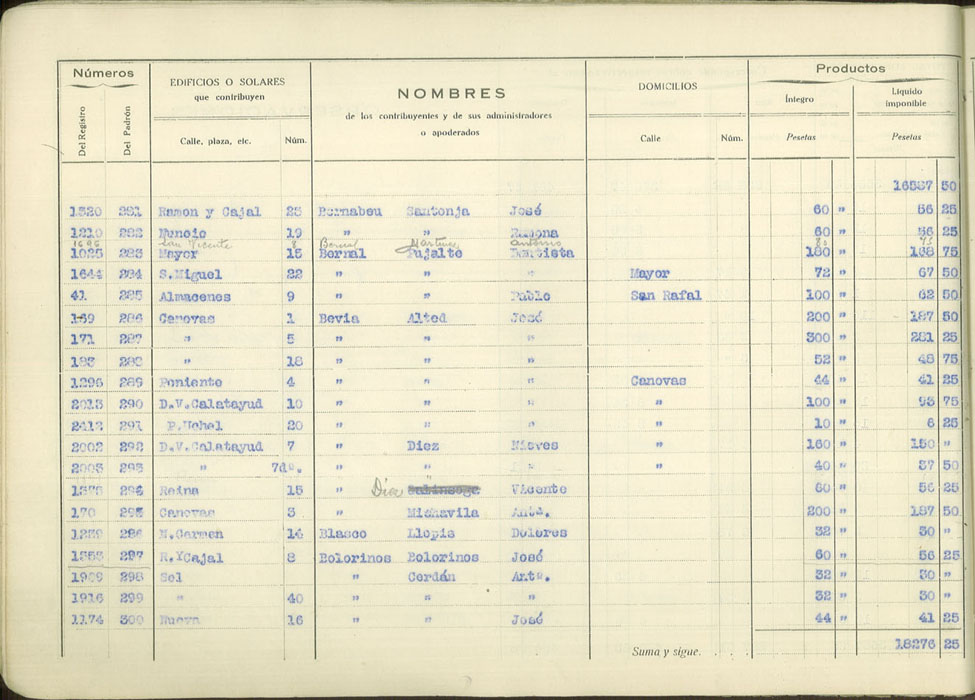 Números EDIFICIOS O SOLARES que contribuyen NOMBRES de los contribuyentes y de sus administradores o apoderados DOMICILIOS Productos
Del Registro Del Padrón Calle, plaza, etc. Núm. Calle Núm. Íntegro Pesetas Líquido imponible Pesetas
16587 50
1320 281 Ramon y Cajal 25 Bernabeu Santonja José 60 " 56 25
1210 282 Nuncio 19 " " Ramona 60 " 56 25
1696 San Vicente 8 Bernal Martinez Antonio
1025 283 Mayor 15 Bernal Pujalte Bautista 180 " 168 75
1644 284 S.Miguel 22 " " Mayor 72 " 67 50
41 285 Almacenes 9 " " Pablo San Rafal 100 " 62 50
169 286 Canovas 1 Bevia Alted José 200 " 187 50
171 287 " 5 " " " 300 " 281 25
183 288 " 18 " " " 52 " 48 75
1296 289 Poniente 4 " " " Canovas 44 " 41 25
2013 290 D.V.Calatayud 10 " " " " 100 " 93 75
2412 291 P.Uchel 20 " " " " 10 " 6 25
2002 292 D.V.Calatayud 7 " Diez Nieves " 160 " 150 "
2003 293 " 7dº. " " " " 40 " 37 50
294 Reina 15 " Diez Vicente 60 " 56 25
170 295 Canovas 3 " Michavila Antº. 200 " 187 50
1259 296 N.Carmen 14 Blasco Llopis Dolores 32 " 30 "
1353 297 R.YCajal 8 Bolorinos Bolorinos José 60 " 56 25
1909 298 Sol " Cerdán Antº. 32 " 30 "
1916 299 " 40 " " " 32 " 30 "
1174 300 Nueva 16 " " José 44 " 41 25
Suma y sigue. . . . 18276 25